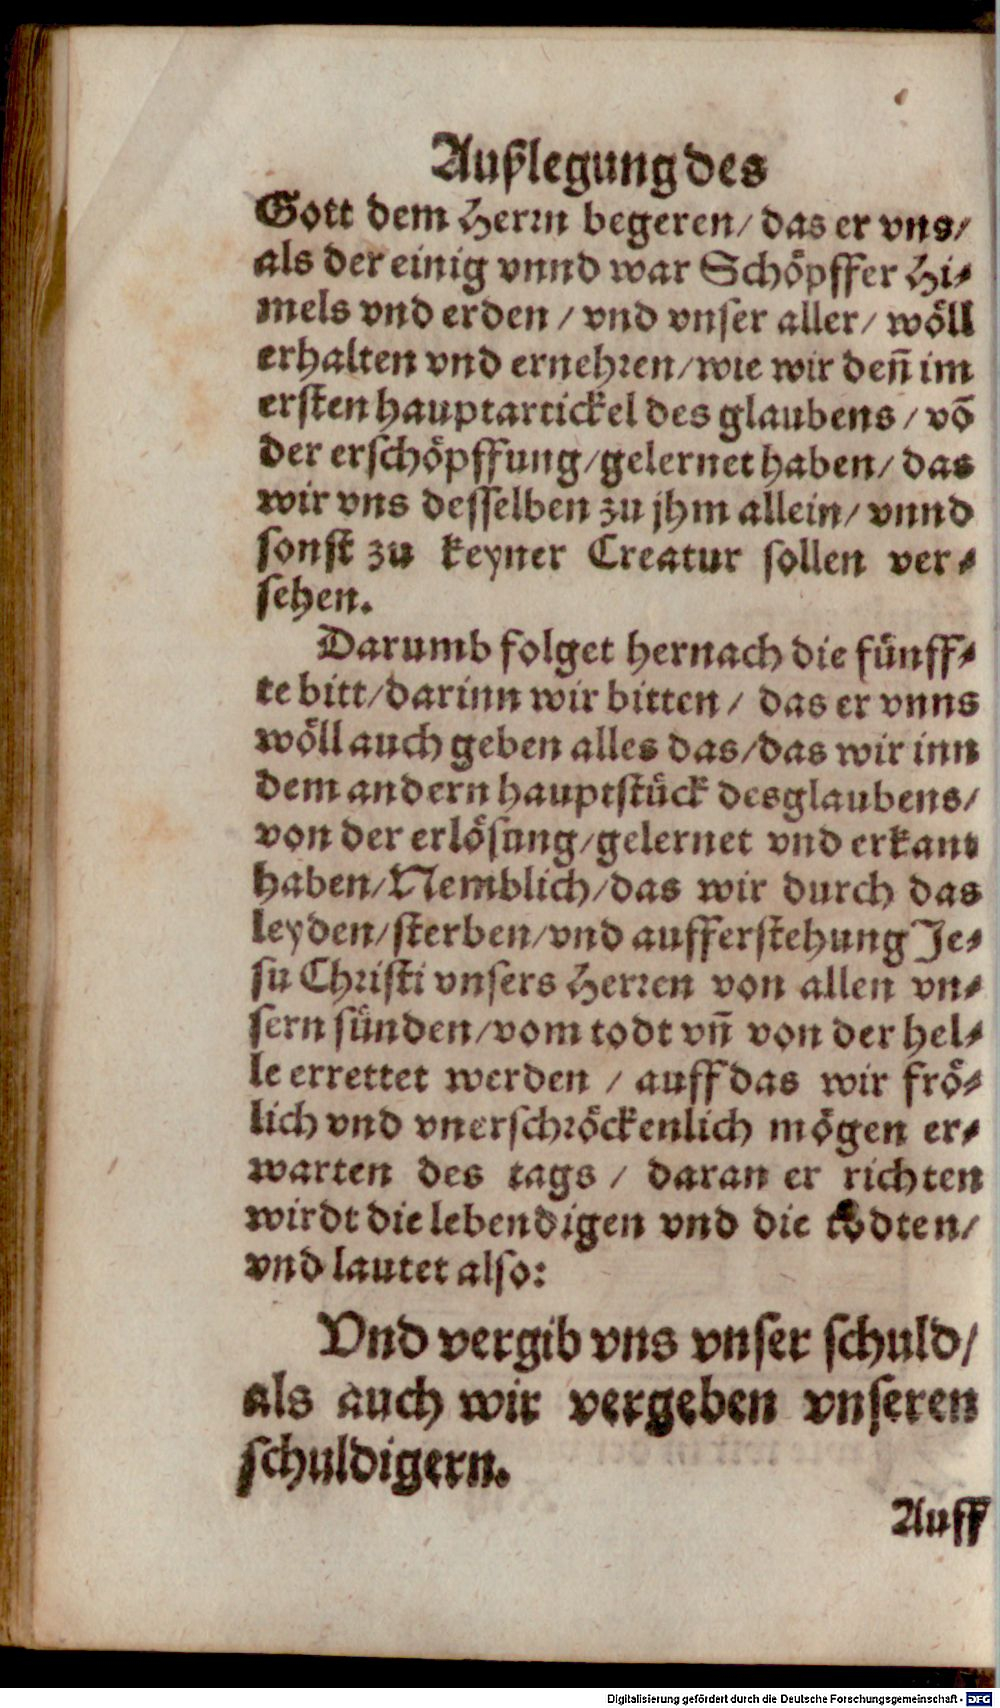 Außlegung des
Gott dem Herrn begeren/ das er vns/
als der einig vnnd war Schöpffer Hi-
mels vnd erden / vnd vnser aller/ wöll
erhalten vnd ernehren/wie wir deñ im
ersten hauptartickel des glaubens / võ
der erschöpffung/gelernet haben/ das
wir vns desselben zu jhm allein/ vnnd
sonst zu keyner Creatur sollen ver-
sehen.
Darumb folget hernach die fünff-
te bitt/darinn wir bitten / das er vnns
wöll auch geben alles das/das wir inn
dem andern hauptstück des glaubens/
von der erlösung/gelernet vnd erkant
haben/Nemblich/das wir durch das
leyden/sterben/vnd aufferstehung Je-
su Christi vnsers Herren von allen vn-
sern sünden/vom todt vñ von der hel-
le errettet werden / auff das wir frö-
lich vnd vnerschröckenlich mögen er-
warten des tags / daran er richten
wirdt die lebendigen vnd die todten/
vnd lautet also:
Vnd vergib vns vnser schuld/
als auch wir vergeben vnseren
schuldigern.
Auff
Digitalisierung gefördert durch die Deutsche Forschungsgemeinschaft - DFG